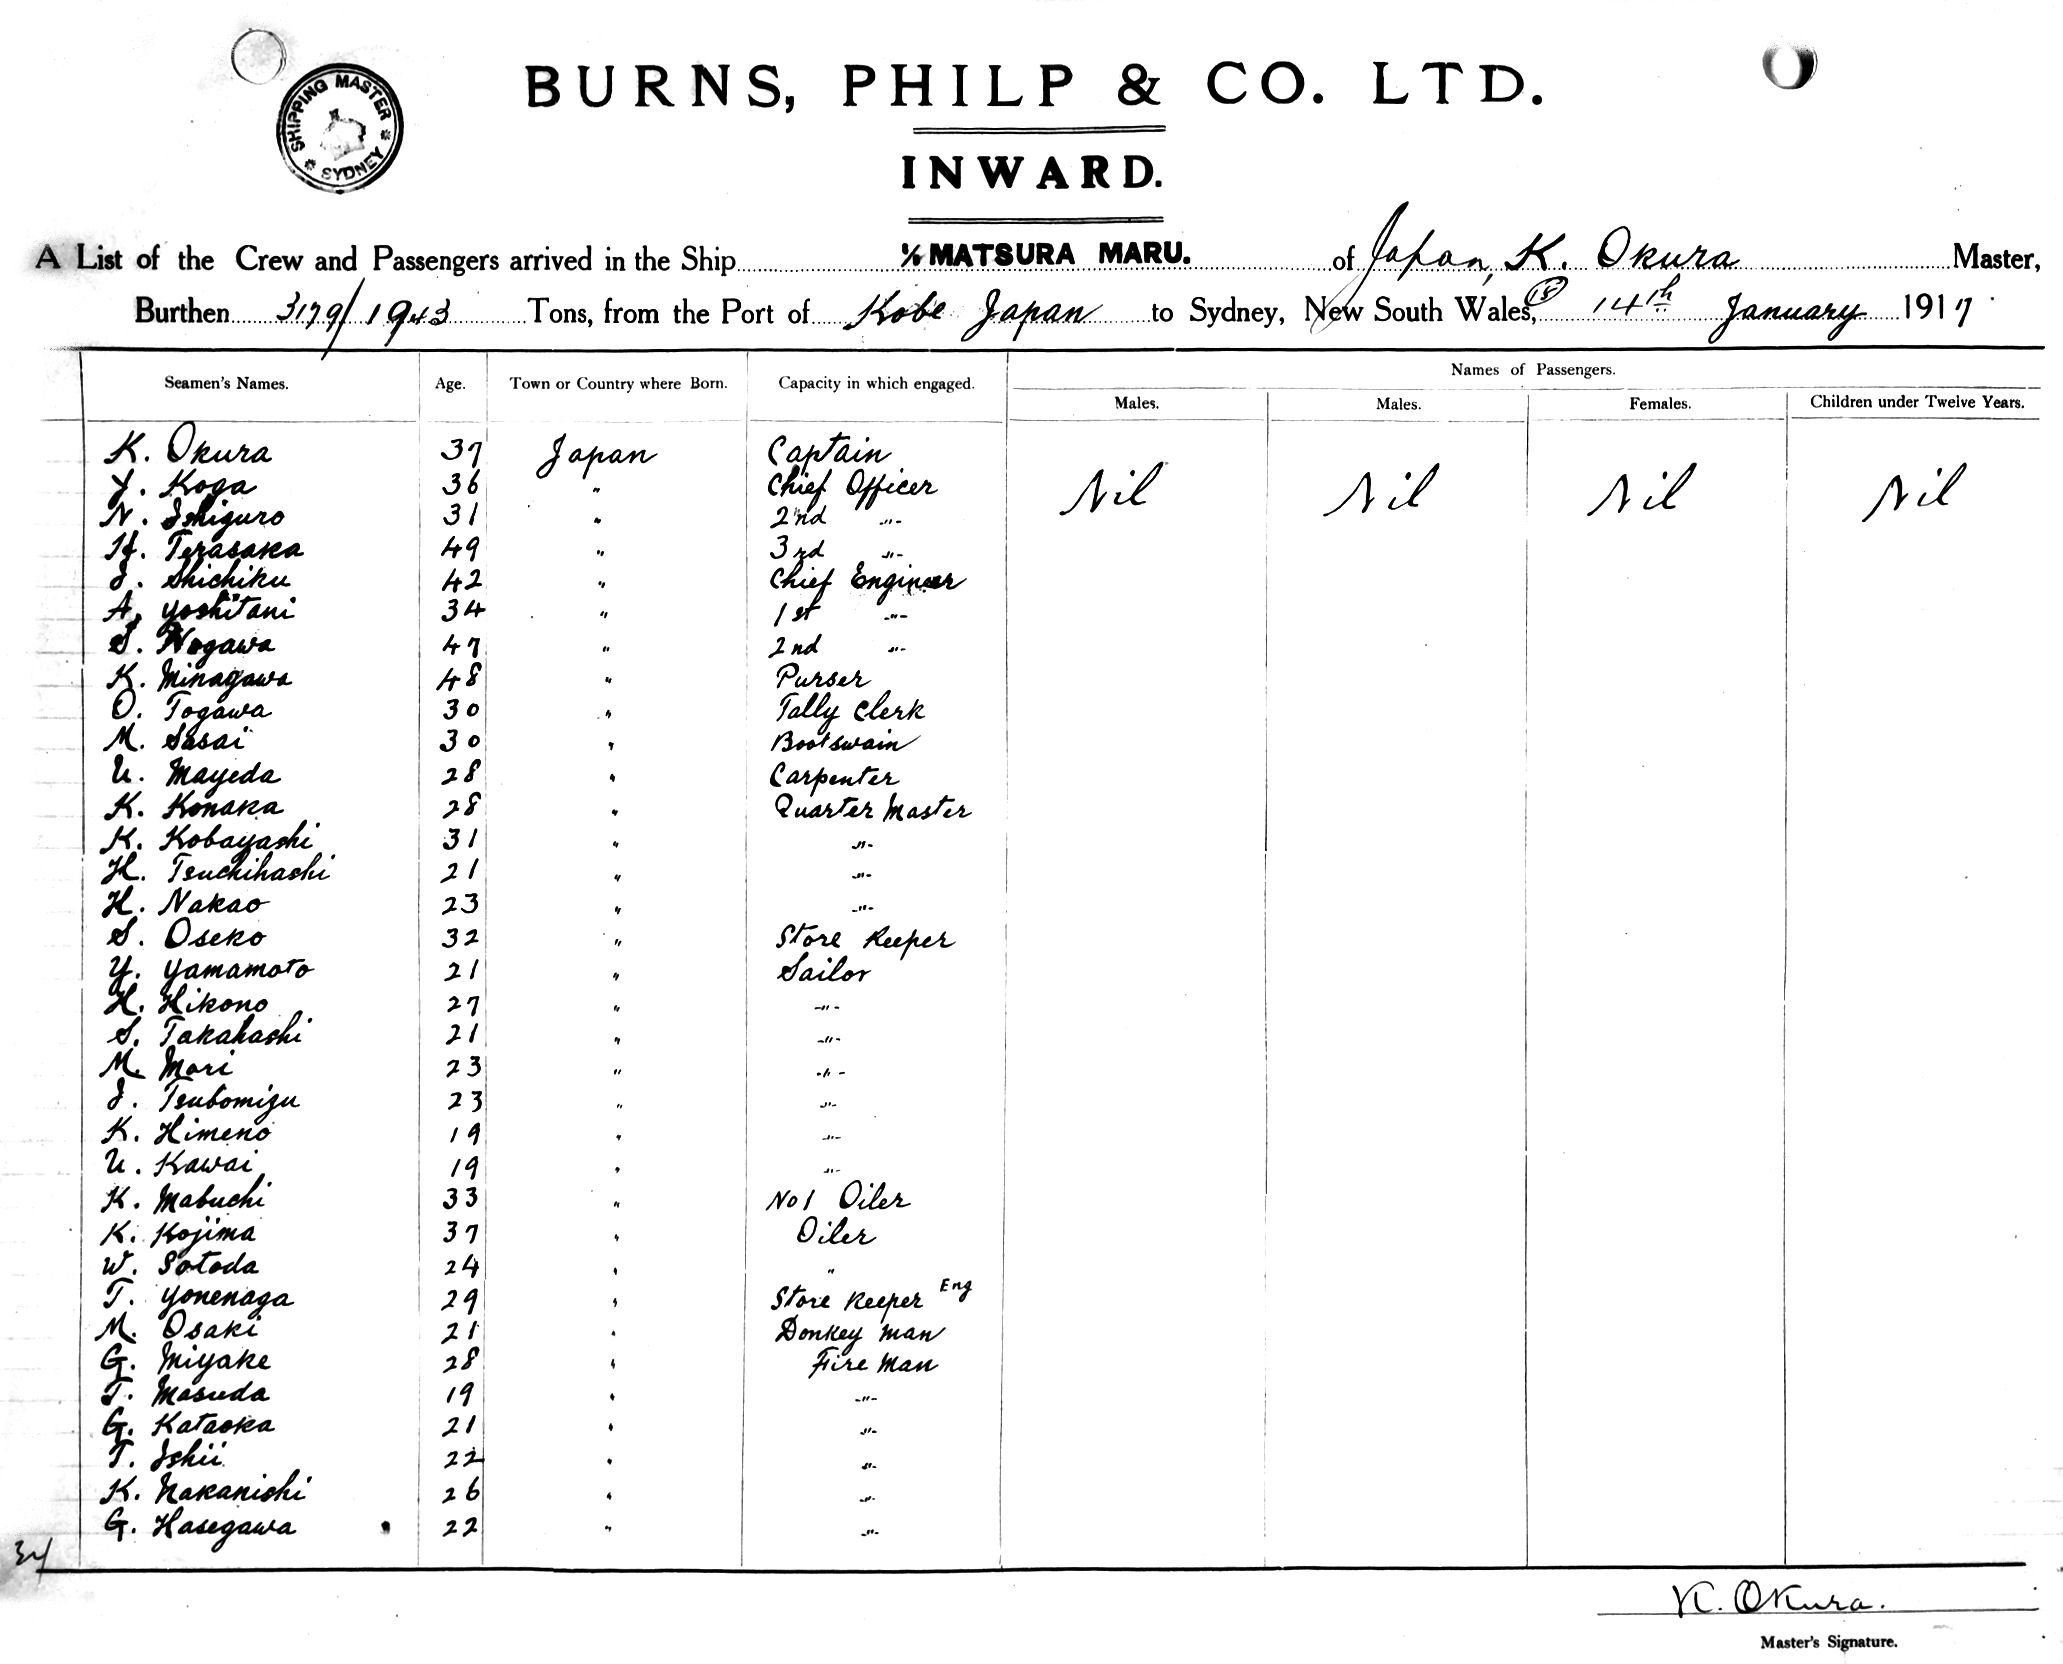 SHIPPING MASTER
SYDNEY
BURNS, PHILP & CO. LTD.
INWARD.
A List of the Crew and Passengers arrived in the Ship S/S MATSURA MARU. of Japan, K. Okura Master,
Burthen 3179/1943 Tons, from the Port of Kobe Japan to Sydney, New South Wales, 18 14th January 1917
Seamen's Names. Age. Town or Country where Born. Capacity in which engaged. Names of Passengers.
Males. Males. Females. Children under Twelve Years.
K. Okura 37 Japan Captain
Y. Koga 36 " Chief Officer Nil Nil Nil Nil
N. Ishiguro 31 " 2nd -"-
H. Terasaka 49 " 3rd -"-
I. Shichiku 42 " Chief Engineer
A. Yoshitani 34 " 1st -"-
S. Nogawa 47 " 2nd -"-
K. Minagawa 48 " Purser
O. Togawa 30 " Tally Clerk
M. Sasai 30 " Bootswain
U. Mayeda 28 " Carpenter
K. Konaka 28 " Quarter Master
K. Kobayashi 31 " -"-
H. Tsuchihashi 21 " -"-
H. Nakao 23 " -"-
S. Oseko 32 " Store Keeper
Y. Yamamoto 21 " Sailor
H. Hikono 27 " -"-
S. Takahashi 21 " -"-
M. Mori 23 " -"-
I. Tsubomizu 23 " -"-
K. Himeno 19 " -"-
U. Kawai 19 " -"-
K. Mabuchi 33 " No 1 Oiler
K. Kojima 37 " Oiler
W. Sotoda 24 " "
T. Yonenaga 29 " Store Keeper Eng
M. Osaki 21 " Donkey Man
G. Miyake 28 " Fire Man
T. Masuda 19 " -"-
G. Kataoka 21 " -"-
T. Ishii 22 " -"-
K. Nakanishi 26 " -"-
G. Hasegawa 22 " -"-
34
K. Okura.
Master's Signature.